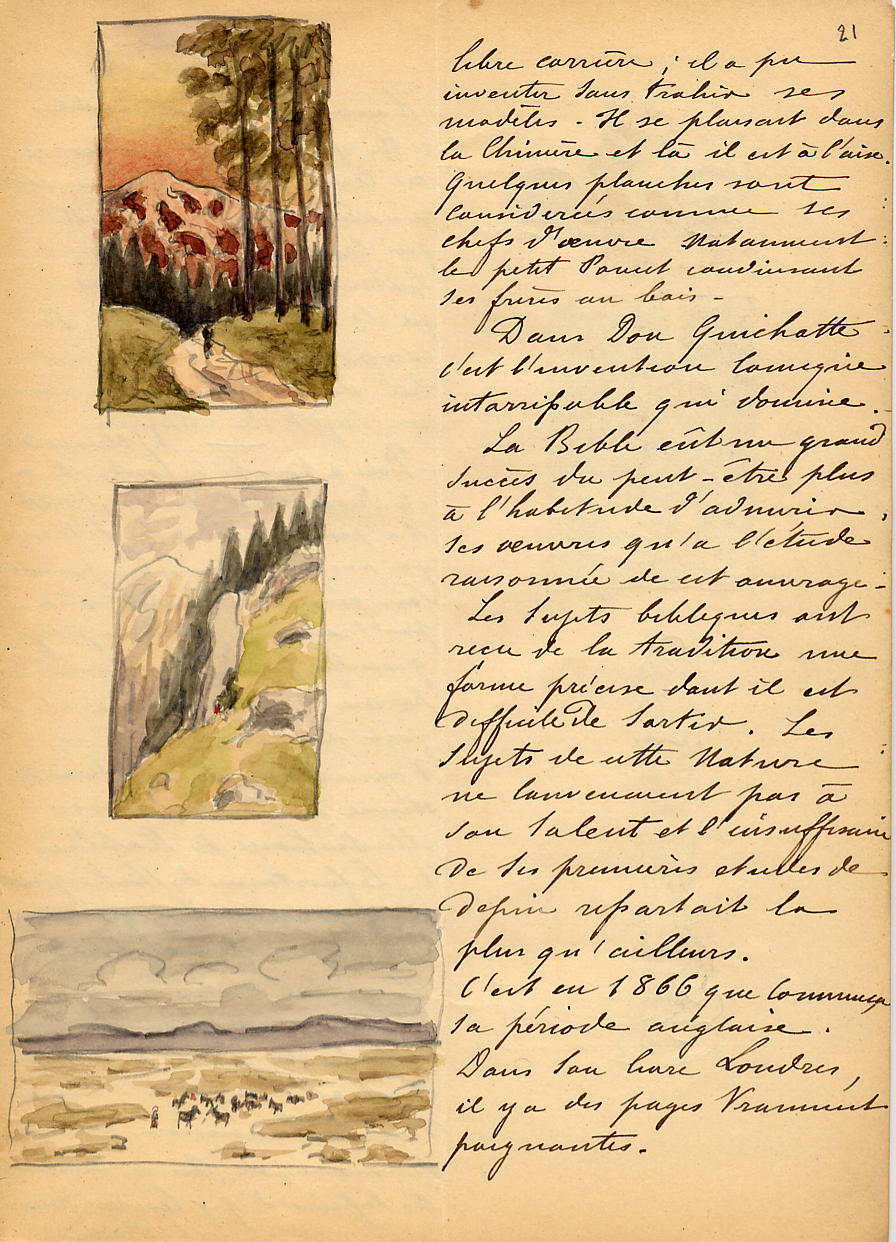 21
libre carrière ; il a pu
inventer sans trahir ses
modèles - Il se plaisait dans
la Chimère et là il est à l'aise.
Quelques planches sont
considerées comme ses
chefs d'œuvre notamment
le petit Poucet conduisant
ses frères au bois -
Dans Don Quichotte
c'est l'invention comique
intarrissable qui domine.
La Bible eût un grand
succès du peut-être plus
à l'habitude d'admirer
ses œuvres qu'à l'étude
raisonnée de cet ouvrage -
Les sujets bibliques ont
reçu de la tradition une
forme précise dont il est
difficile de sortir. Les
sujets de cette nature
ne convenaient pas à
son talent et l'insuffisance
de ses premières etudes de
dessin ressortait là
plus qu'ailleurs.
C'est en 1866 que commença
sa période anglaise.
Dans son livre Londres,
il y a des pages vraiment
poignantes.